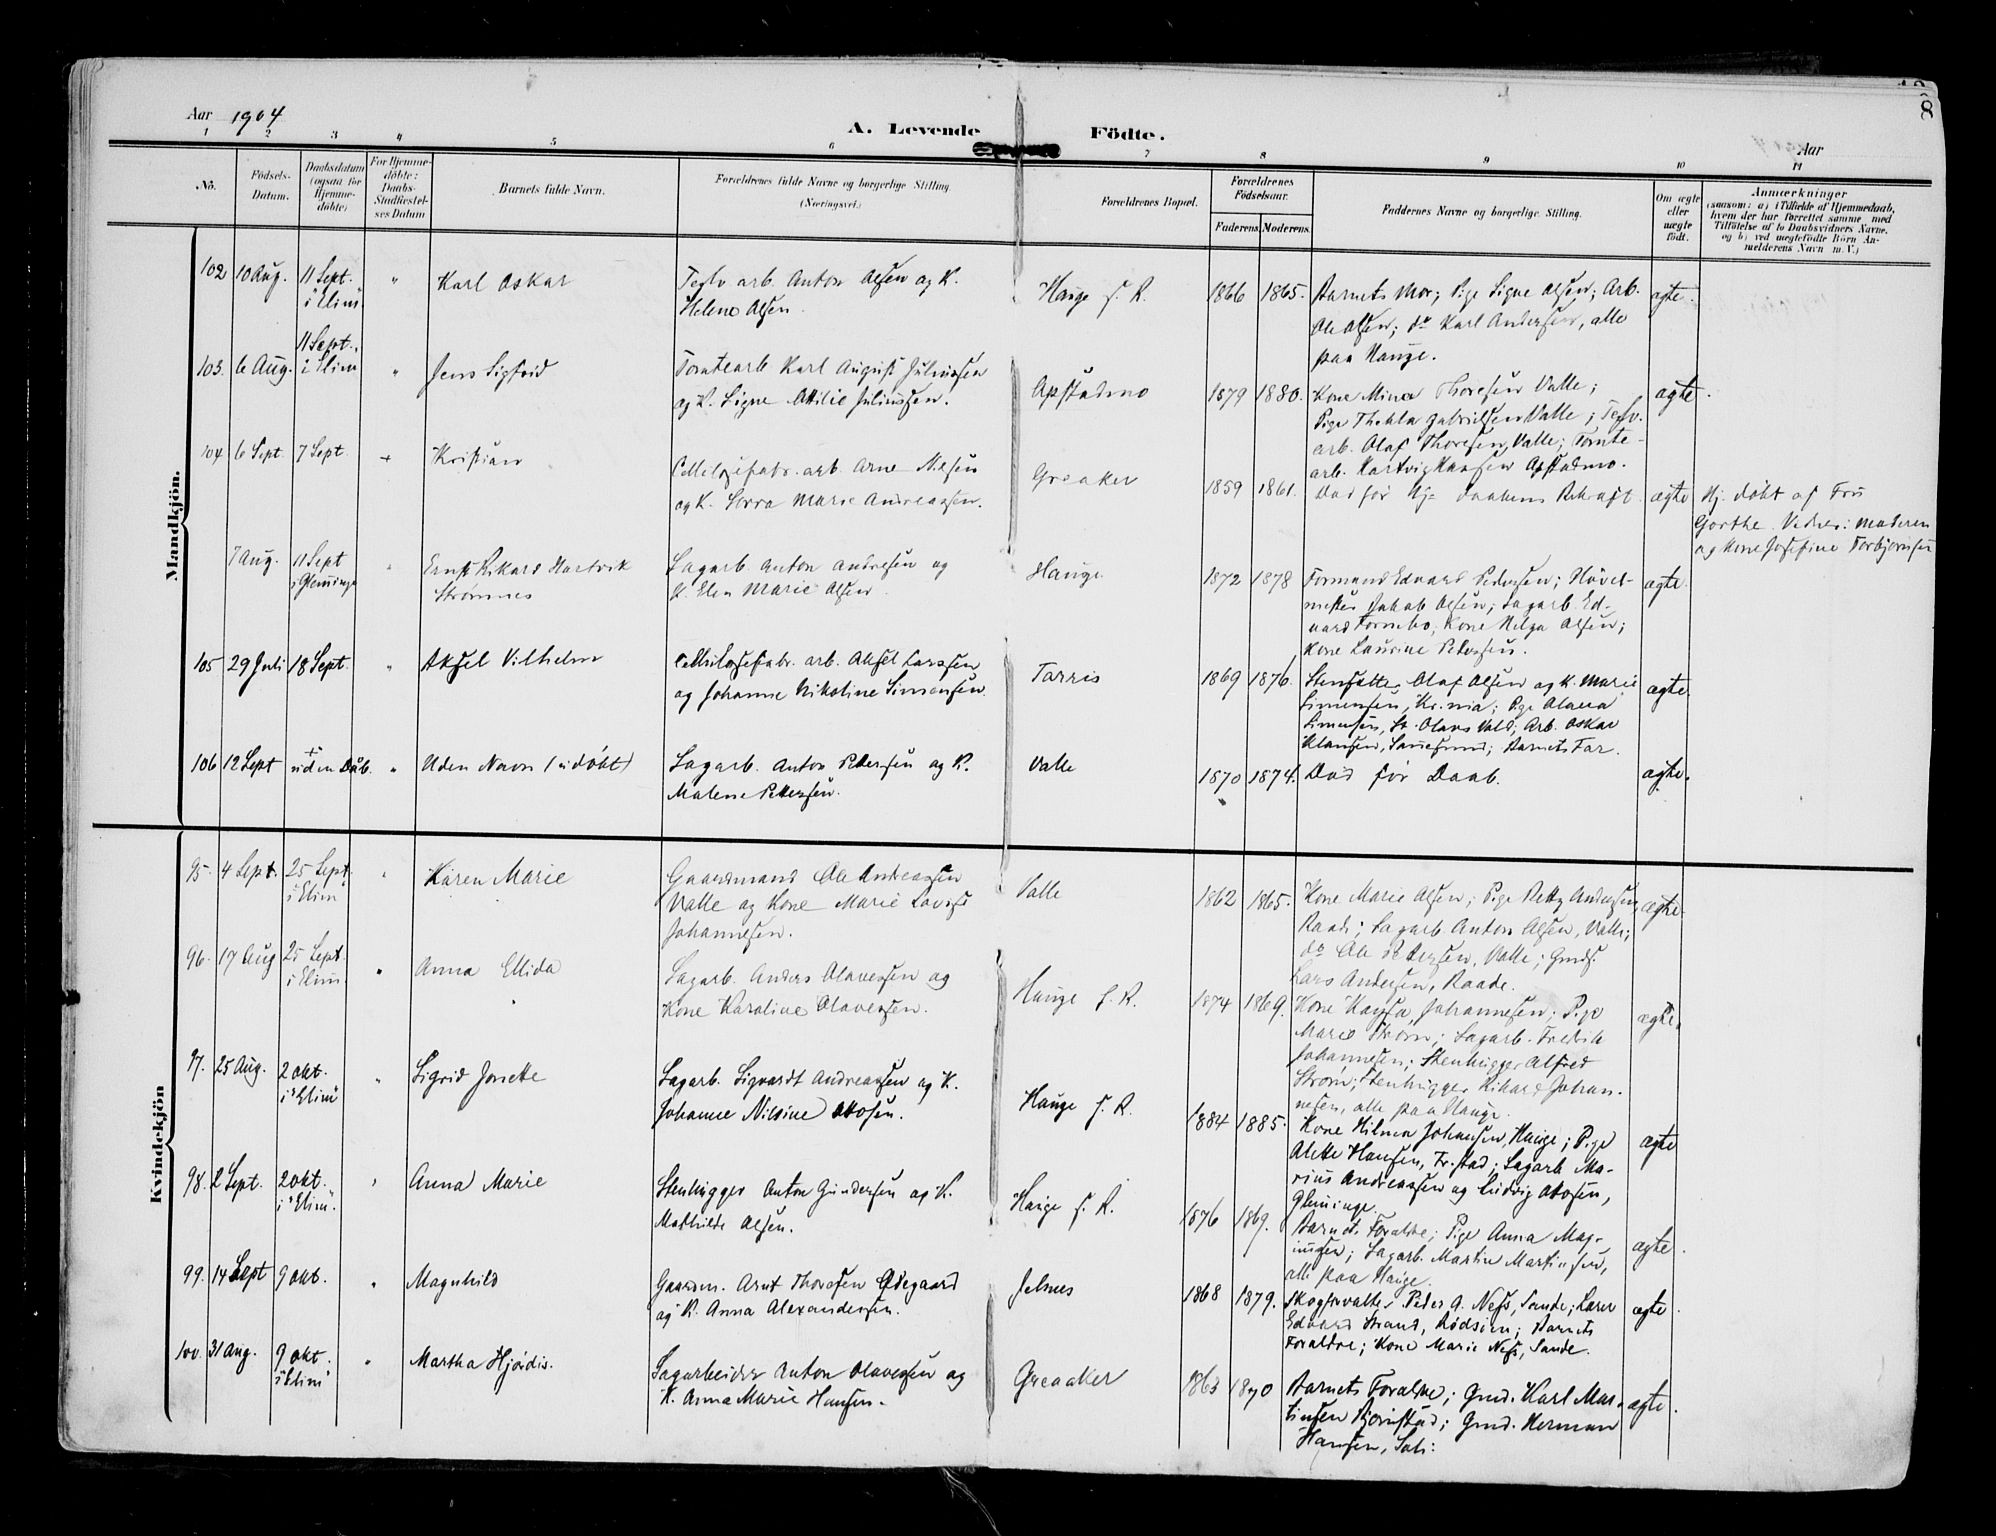 Aar 1904
A. Levende Födte.
8
Aar
1 2 3 4 5 6 7 8 9 10 11
No.
Födsels-Datum.
Daabsdatum (ogsaa for Hjemme-döbte)
For Hjemme-döbte: Daabs-Stadfæstelses Datum
Barnets fulde Navn.
Forældrenes fulde Navne og borgerlige Stilling (Næringsvei.)
Forældrenes Bopæl.
Forældrenes Födselsaar.
Faderens. Moderens.
Faddernes Navne og borgerlige Stilling.
Om ægte eller uægte födt.
Anmærkninger
(saasom: a) i Tilfælde af Hjemmedaab,
hvem der har forrettet samme, med
Tilföielse af to Daabsvidners Navne.
og b) ved uægtefödte Börn An-
melderens Navn m.V.)
Mandkjön.
102 10 Aug. 11 Sept. i "Elim" " Karl Oskar
Teglv. arb. Anton Olsen og K.
Helene Olsen.
Hauge s. R. 1866 1865.
Barnets Mor; Pige Signe Olsen; Arb.
Ole Olsen; do Karl Andersen, alle
paa Hauge.
ægte.
103. 6 Aug. 11 Sept. i Elim " Jens Sigfrid
Tomtearb. Karl August Juliussen
og K. Signe Otilie Juliussen.
Opstadmo 1879 1880.
Kone Mina Thoresen Valle;
Pige Thekla Gabrielsen Valle; Teglv.
arb. Olaf Thoresen, Valle; Tomte-
arb. Hartvig Hansen Opstadmo.
ægte.
104 6 Sept. 7 Sept. + Kristian
Cellulosefabr. arb. Arne Nilsen
og K. Lovra Marie Andreassen.
Greaker 1859 1861.
Død før Hj= daabens Bekræft.
ægte
Hj. døbt af Fru
Gorthe. Vidner: Moderen
og Kone Josefine Torbjørnsen
7 Aug. 11 Sept i Glemminge " Ernst Rikard Hartvik
Strømnes
Sagarb. Anton Andresen og
K. Elen Marie Olsen.
Hauge. 1872 1878
Formand Edvard Pedersen; Høvel-
mester Jakob Olsen; Sagarb. Ed-
vard Tormbo; Kone Helga Olsen;
Kone Laurine Pedersen.
ægte.
105 29 Juli 18 Sept. " Aksel Vilhelm
Cellulosefabr. arb. Aksel Larssen
og Johanne Nikoline Simensen.
Torris 1869 1876.
Stenhatter Olaf Olsen og K. Marie
Simensen, Kr.nia; Pige Olava
Simensen, St. Olavs Vold; Arb. Oskar
Klausen, Sannesund; Barnets Far.
ægte.
106 12 Sept + uden Daab. " Uden Navn (udøbt)
Sagarb. Anton Pedersen og K.
Malene Pedersen.
Valle 1870 1874.
Død før Daab.
ægte.
Kvindekjön
95. 4 Sept. 25 Sept. i Elim " Karen Marie
Gaardmand Ole Andreassen
Valle og Kone Marie Lovise
Johannesen.
Valle 1862 1865.
Kone Marie Olsen; Pige Betty Andersen,
Raade; Sagarb. Anton Olsen, Valle;
do Ole Pedersen, Valle; Gmdf.
Lars Andersen, Raade.
ægte.
96. 17 Aug 25 Sept. i Elim. " Anna Ellida
Sagarb. Anders Olavessen og
Kone Karoline Olavessen.
Hauge s. R. 1874 1869.
Kone Kaysa Johannesen; Pige
Marie Strøm; Sagarb. Fredrik
Johannesen; Stenhugger Alfred
Strøm; Stenhugger Rikard Johan-
nesen, alle paa Hauge.
ægte.
97. 25 Aug. 2 Okt. i "Elim" " Sigrid Jonette
Sagarb. Sigvardt Andreassen og K.
Johanne Nilsine Ottosen.
Hauge s. R. 1884 1885.
Kone Hilma Johansen, Hauge; Pige
Alette Hansen, Fr.stad; Sagarb. Ma-
rius Andreassen og Ludvig Ottosen,
Glemminge.
ægte
98. 2 Sept. 2 Okt. i "Elim". " Anna Marie
Stenhugger Anton Gundersen og K.
Mathilde Olsen.
Hauge s. R. 1876 1869.
Barnets Forældre; Pige Anna Mag-
nussen; Sagarb. Martin Martinsen,
alle paa Hauge.
ægte.
99. 14 Sept 9 Okt. " Magnhild
Gaardm. Arnt Thoresen Ødegaard
og K. Anna Alexandersen.
Jelnes 1868 1879.
Skogforvalter Peder A. Næss, Sande; Lærer
Edvard Strand, Rødsien; Barnets
Forældre; Kone Marie Næss, Sande.
ægte.
100. 31 Aug. 9 Okt. i "Elim" " Martha Hjørdis.
Sagarbeider Anton Olavessen og
K. Anna Marie Hansen.
Greaaker 1863 1870
Barnets Forældre; Gmd. Karl Mar-
tinsen Bjørnstad; Gmd. Herman
Hansen, Soli.
ægte.